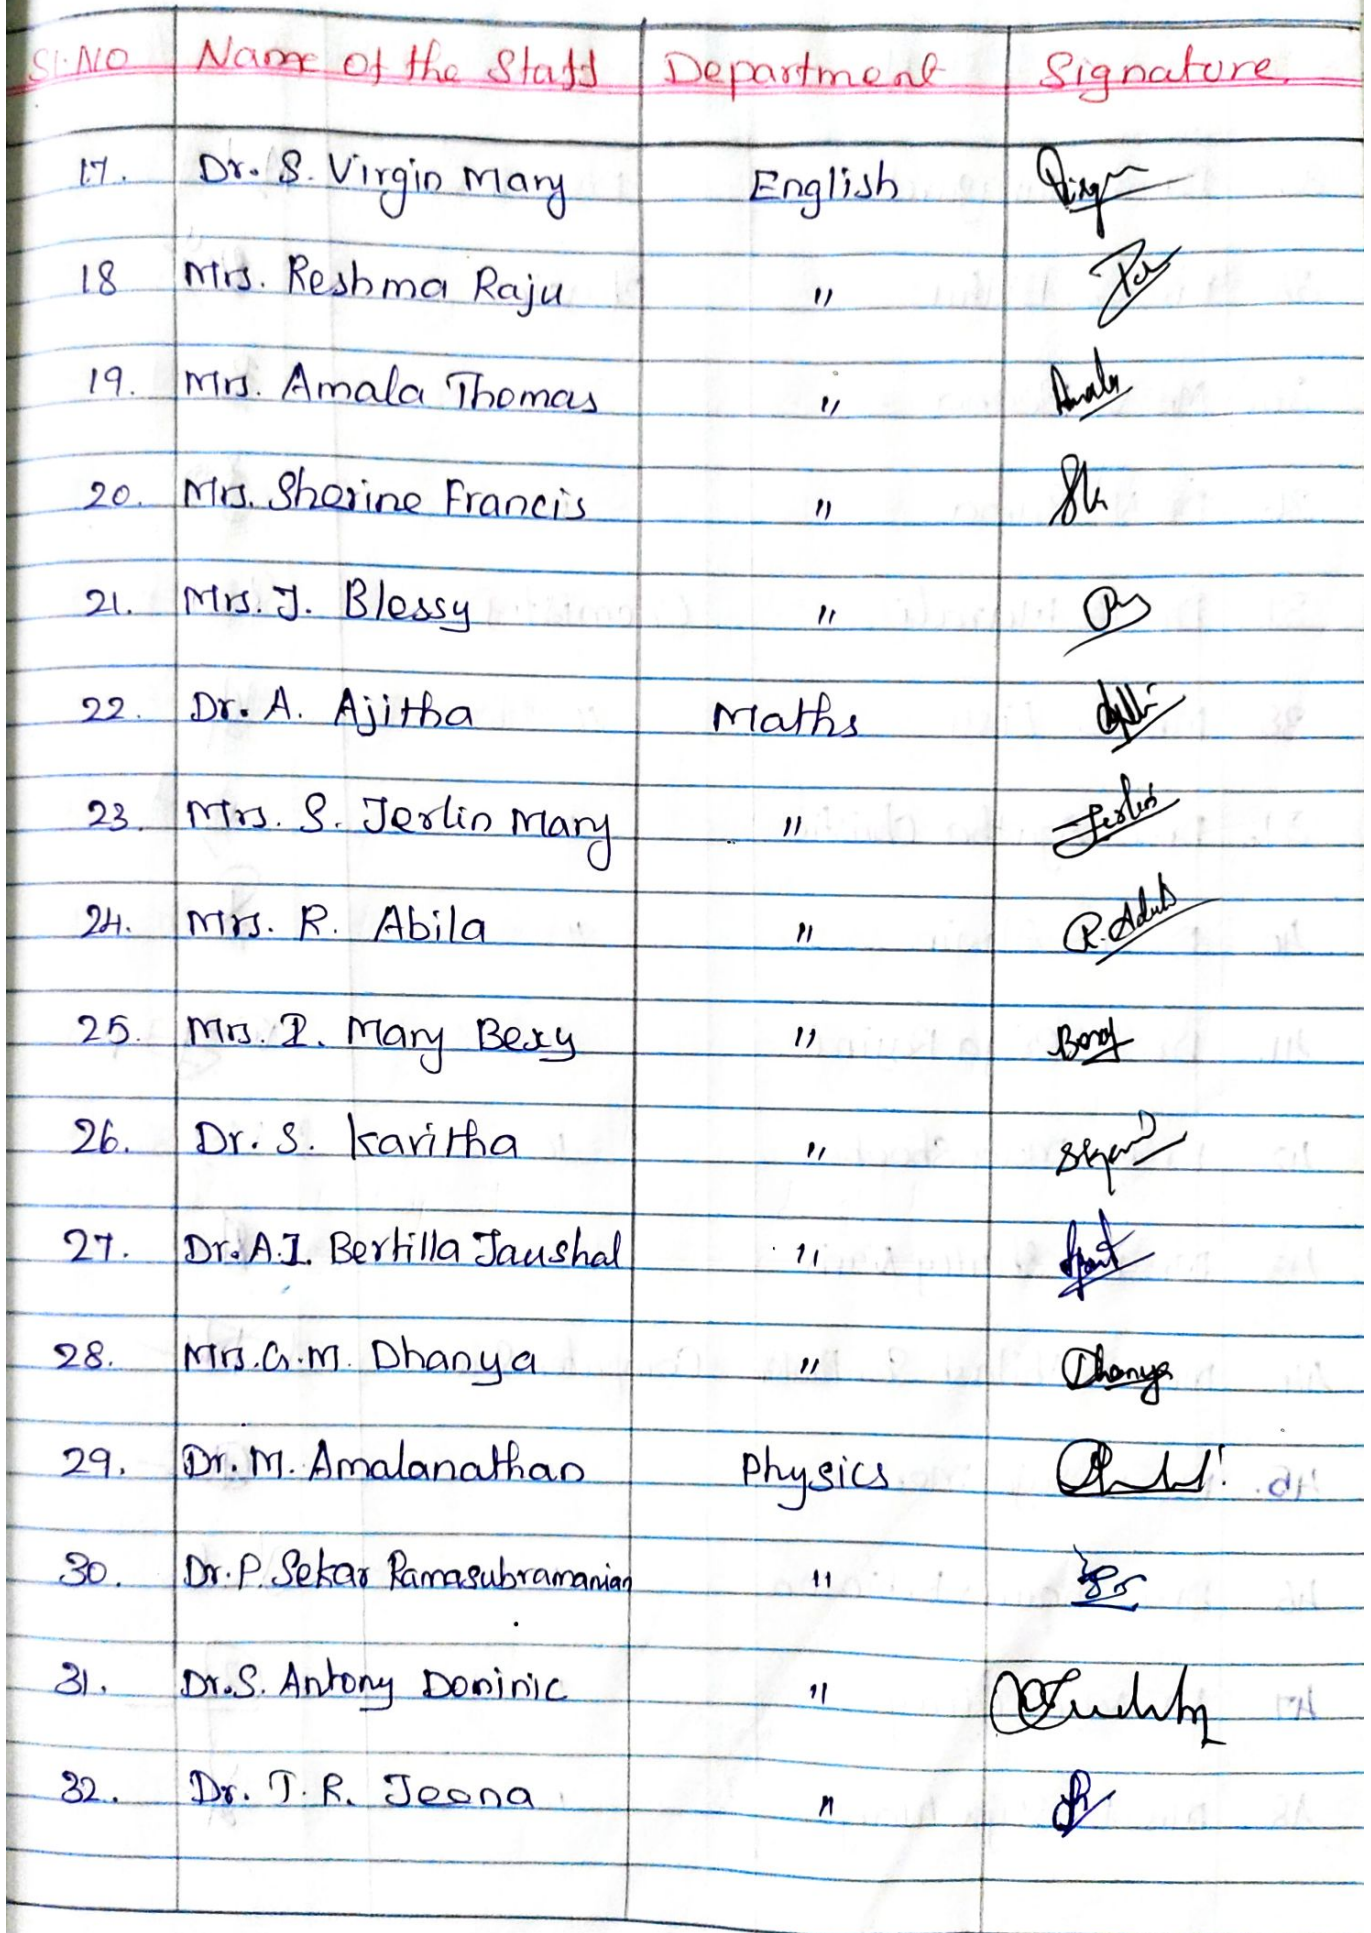 Sl.No Name of the Staff Department Signature
17. Dr. S. Virgin Mary English
18 Mrs. Reshma Raju "
19. Mrs. Amala Thomas " Amala
20. Mrs. Sherine Francis "
21. Mrs. J. Blessy "
22. Dr. A. Ajitha Maths
23. Mrs. S. Jerlin Mary " Jerlin
24. Mrs. R. Abila "
25. Mrs. I. Mary Bexy "
26. Dr. S. Kavitha "
27. Dr. A.I. Bertilla Jaushal "
28. Mrs. G.M. Dhanya " Dhanya
29. Dr. M. Amalanathan Physics
30. Dr. P. Sekar Ramasubramanian "
31. Dr. S. Antony Dominic "
32. Dr. T. R. Jeena "